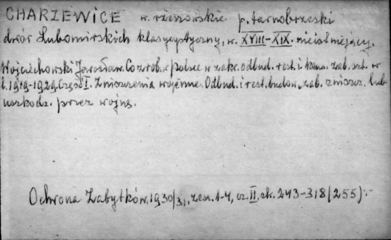 CHARZEWICE w. rzeszowskie p. tarnobrzeski
dwór Lubomirskich klasycystyczny, w. XVIII-XIX. nieistniejący.
Wojciechowski Jarosław. Co zrob. w Polsce w zakr. odbud. rest. i kons. zab. szt. w
l. 1919-1929. Część I. Zniszczenia wojenne. Odbud. i rest. budow. zab. zniszcz. lub
uszkodz. przez wojnę.
Ochrona Zabytków. 1930/31, zesz. 1-4, cz. II, sk. 243-318 (255).-